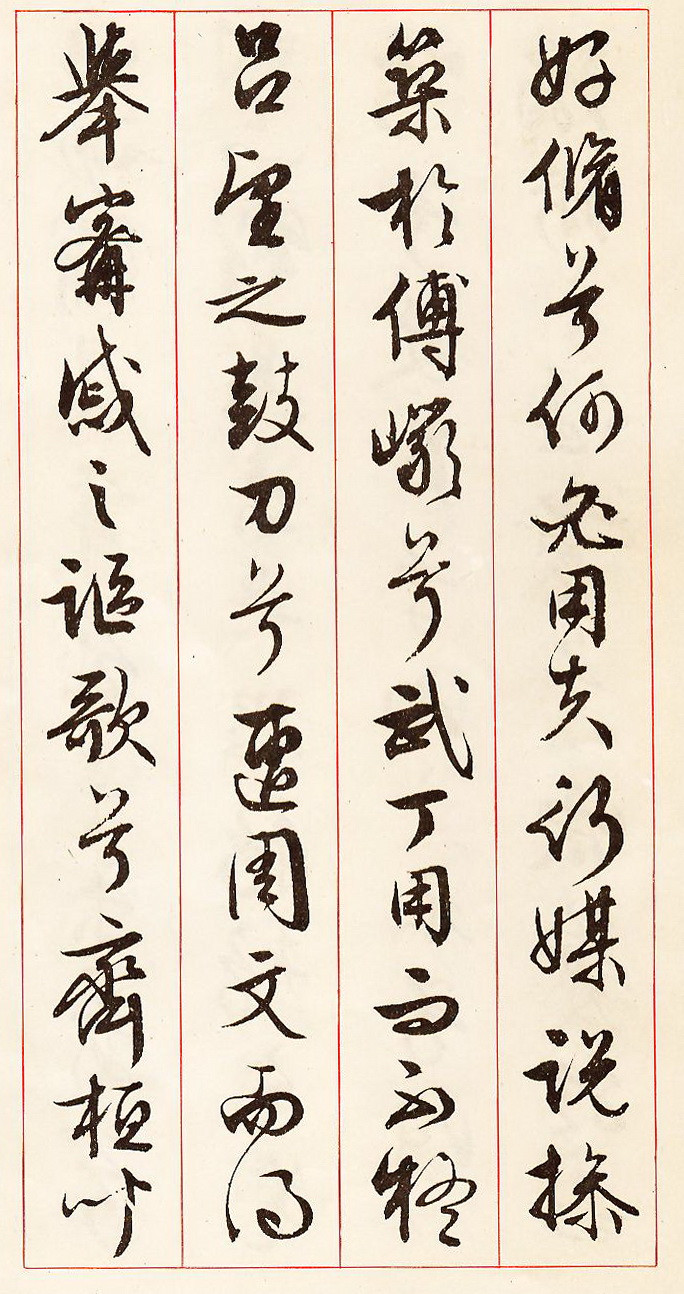 好脩兮何必用夫行媒說操
築於傅巖兮武丁用而不疑
呂望之鼓刀兮遭周文而得
舉甯戚之謳歌兮齊桓以